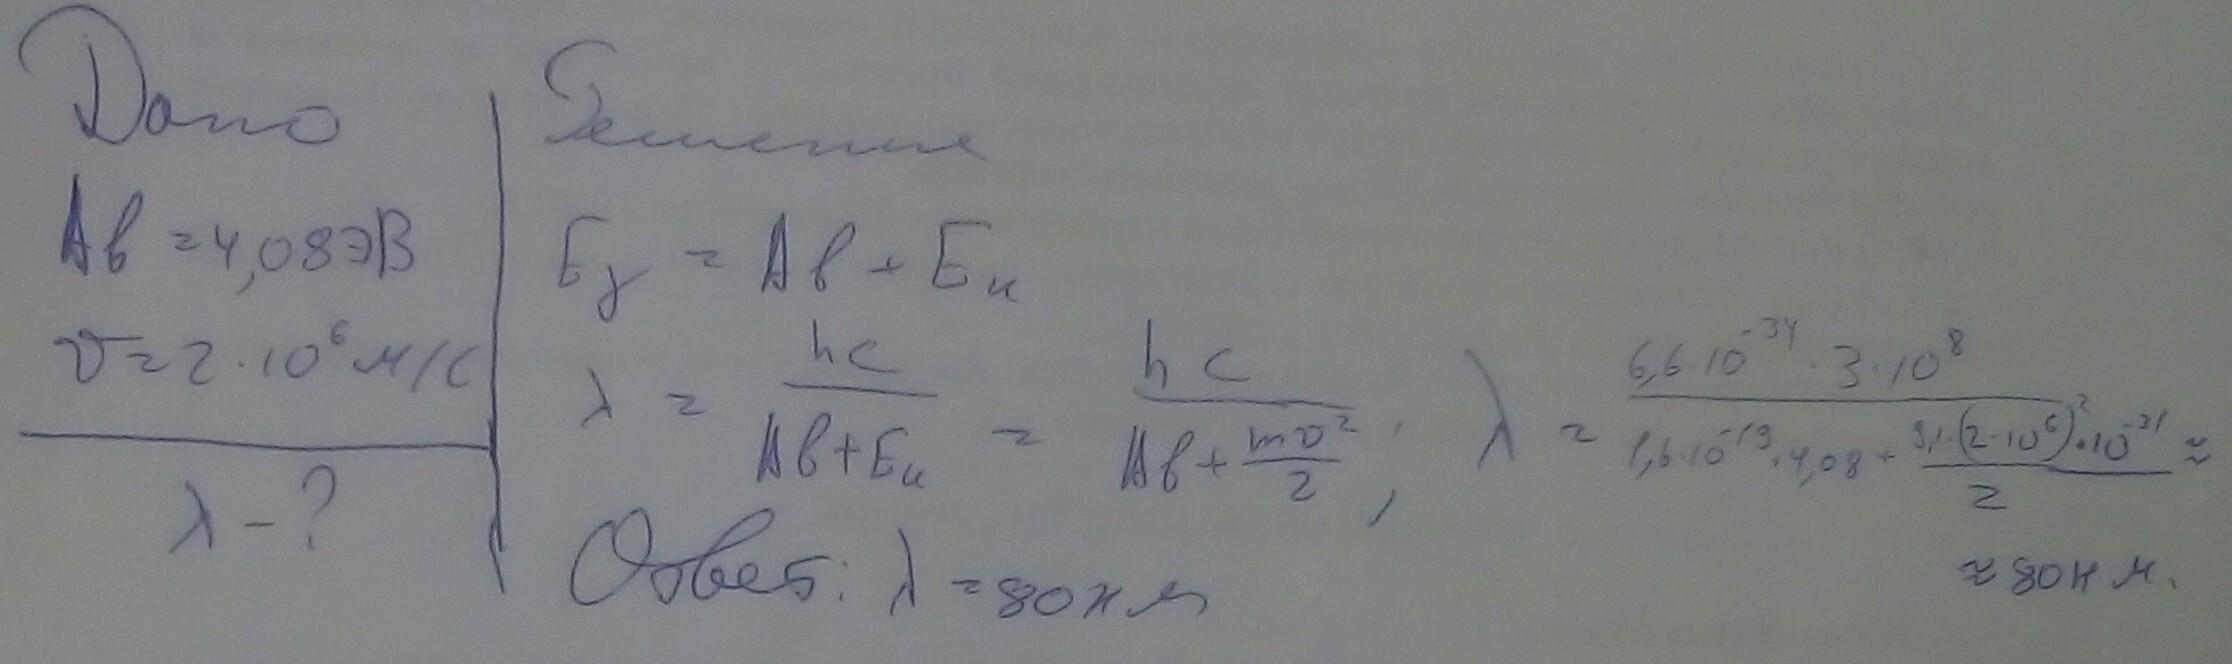 Дано
Aв = 4,08 эВ
υ = 2 · 10⁶ м/с
λ - ?
Решение
Eγ = Aв + Eк
λ = hc / (Aв + Eк) = hc / (Aв + mυ²/2), λ = (6,6 · 10⁻³⁴ · 3 · 10⁸) / (1,6 · 10⁻¹⁹ · 4,08 + (9,1 · (2 · 10⁶)² · 10⁻³¹)/2) ≈
≈ 80 н м.
Ответ: λ = 80 н м